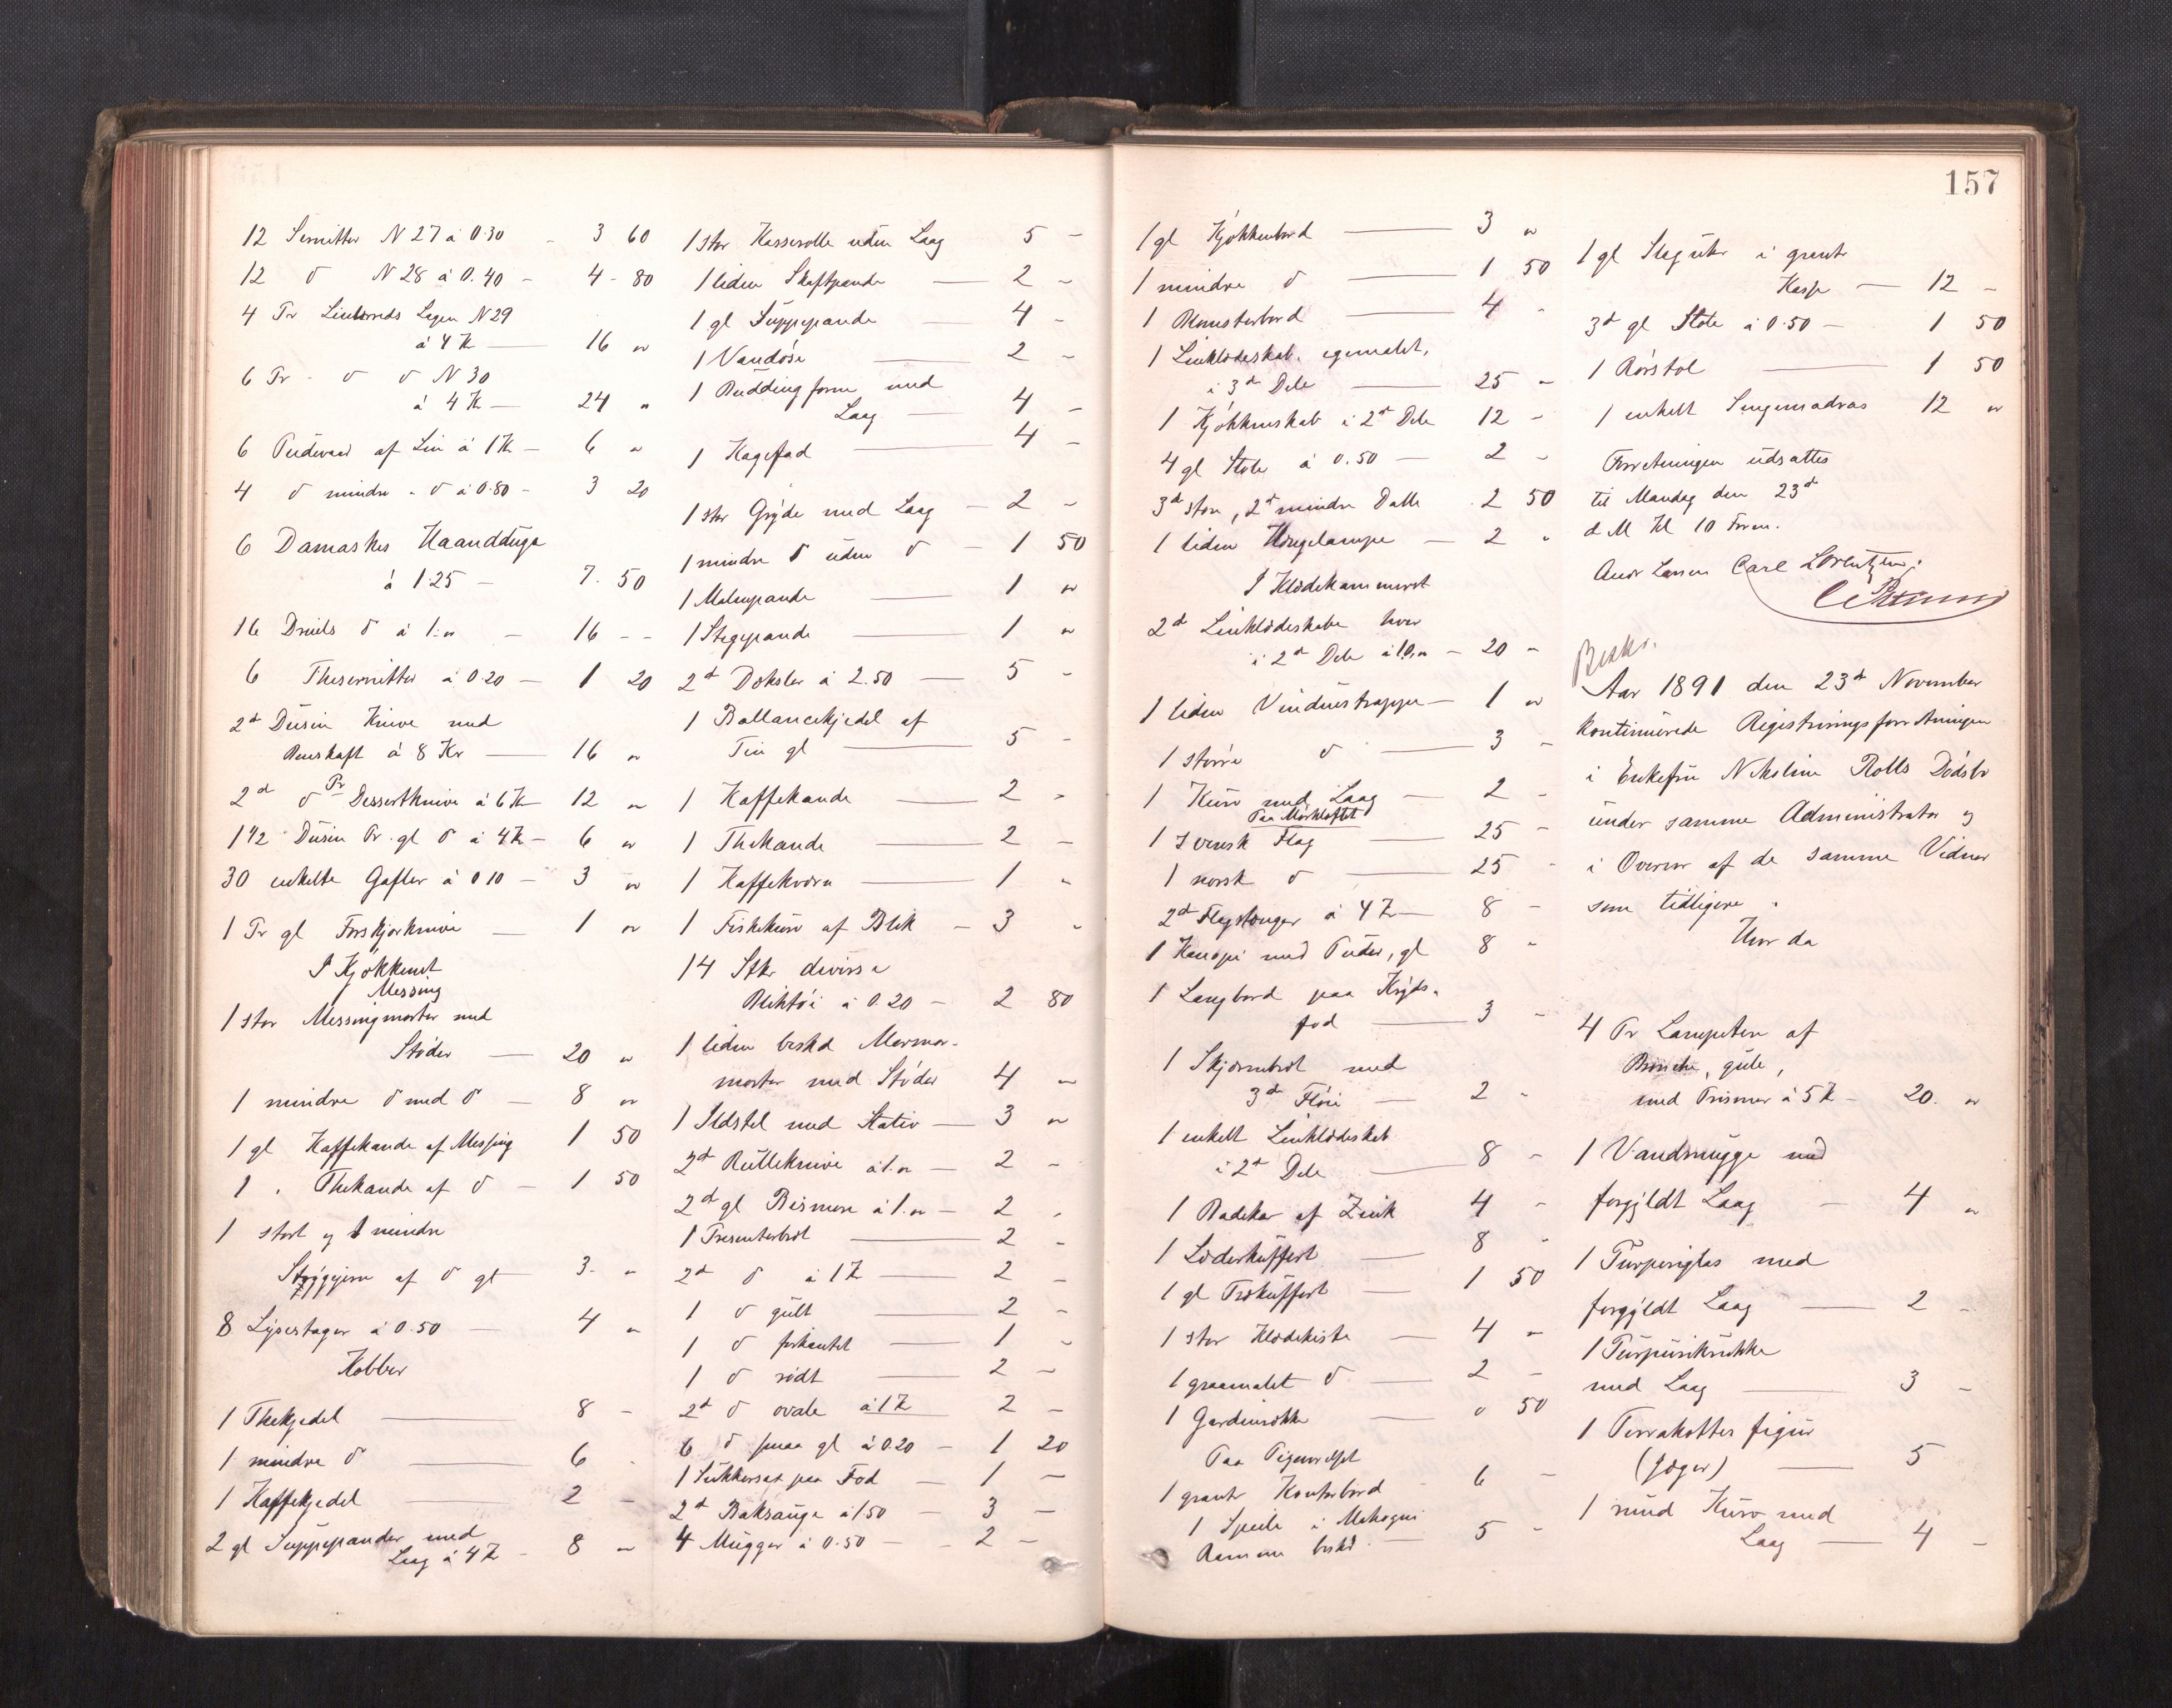 12 Servitter N 27 à 0.30 - 3 60
12 d N 28 à 0.40 - 4 - 80
4 Pr Linlærreds Lagen N 29
à 4 Kr — 16 "
6 Pr - d d N 30
à 4 Kr — 24 "
6 Pudevaar af Lin à 1 Kr - 6 "
4 d mindre - d à 0.80 - 3 20
6 Damaskes Haandduge
à 1.25 - 7. 50
16 Dreils d à 1." - 16 - -
6 Theservitter à 0.20 — 1 20
2d Dusin Knive med
Benskaft à 8 Kr — 16 "
2d d Pr Dessertknive à 6 Kr 12 "
1 1/2 Dusin Pr. gl d à 4 Kr - 6 "
30 enkelte Gafler à 0 10 - 3 "
1 Pr gl Forskjærknive — 1 "
I Kjøkkenet
Messing
1 stor Messingmorter med
Støder — 20 "
1 mindre d med d — 8 "
1 gl Kaffekande af Messing 1 50
1 " Thekande af d - 1 50
1 stort og 1 mindre
Strygejern af d gl — 3. "
8 Lysestager à 0.50 — 4 "
Kobber
1 Thekjedel — 8 -
1 mindre d — 6 -
1 Kaffekjedel — 2 -
2 gl Suppepander med
Laag à 4 Kr - 8 "
1 stor Kasserolle uden Laag 5 -
1 liden Skaftpande — 2 -
1 gl Suppepande — 4 -
1 Vandøse — 2 -
1 Budding form med
Laag — 4 -
1 Kagefad — 4 -
1 stor Gryde med Laag - 2 -
1 mindre d uden d - 1 50
1 Melnepande — 1 "
1 Stegepande — 1 "
2d Dørslar à 2.50 — 5 -
1 Ballancekjedel af
Tin gl — 5 -
1 Kaffekande — 2 -
1 Thekande — 2 -
1 Kaffekværn — 1 -
1 Fiskekurv af Blik - 3 "
14 Stkr diverse
Bliktøi à 0.20 - 2 80
1 liden beskd Marmor-
morter med Støder 4 "
1 Ildstel med Stativ — 3 "
2d Rulleknive à 1." — 2 -
2d gl Bismere à 1." — 2 -
1 Presenterbræt — 2 -
2d d à 1 Kr — 2 -
1 d gult — 2 -
1 d firkantet — 1 -
1 d rødt — 2 -
2d d ovale à 1 Kr 2 -
6 d smaa gl à 0.20 - 1 20
1 Sukkersax paa Fod — 1 —
2d Baksauge à 1.50 — 3 —
4 Mugger à 0.50 — 2 —
157
1 gl Kjøkkenbord — 3 "
1 mindre d — 1 50
1 Blomsterbord — 4 "
1 Linklædeskab egemalet,
i 3d Dele — 25 -
1 Kjøkkenskab i 2d Dele 12 -
4 gl Stole à 0.50 — 2 -
3d store, 2d mindre Baller 2 50
1 liden Hængelampe — 2 "
I Klædekammeret
2d Linklædeskabe hver
i 2d Dele à 10," — 20 "
1 liden Vinduestrappe — 1 "
1 større d — 3 -
1 Kurv med Laag — 2 -
Paa Mørkloftet
1 svensk Flag — 25 -
1 norsk d — 25 -
2d Flagstænger à 4 Kr — 8 -
1 Kanape med Puder, gl 8 -
1 Langbord paa Kryds-
fod — 3 -
1 Skjærmbræt med
3d Fløie — 2 -
1 enkelt Linklædeskab
i 2d Dele — 8 -
1 Badekar af Zink 4 -
1 Læderkuffert — 8 -
1 gl Trækuffert — 1 50
1 stor Klædekiste — 4 "
1 graamalet d — 2 -
1 Gardinsække — " 50
Paa Pigeværelset
1 grønt Kontorbord 6 -
1 Speile i Mahogni
Ramme beskd. — 5 -
1 gl Slagúhr i grønt
Kasse — 12 -
3d gl Stole à 0.50 - 1 50
1 Rørstol — 1 50
1 enkelt Sengemadras 12 "
Forretningen udsattes
til Mandag den 23d
d M Kl 10 Form.
Andr Larsen Carl Lorentzen.
Beskr.
Aar 1891 den 23d November
kontinuerede Registreringsforretningen
i Enkefru Nikoline Rolls Dødsbo
under samme Administrator og
i Overvær af de samme Vidner
som tidligere.
Hvor da
4 Pr Lampetter af
Bronche, gule,
med Prismer à 5 Kr - 20. "
1 Vandmugge med
forgyldt Laag — 4 "
1 Purpurglas med
forgyldt Laag — 2 -
1 Purpurkrukke
med Laag — 3 -
1 Terrakottes figur
(Jæger) — 5
1 rund Kurv med
Laag — 4 -